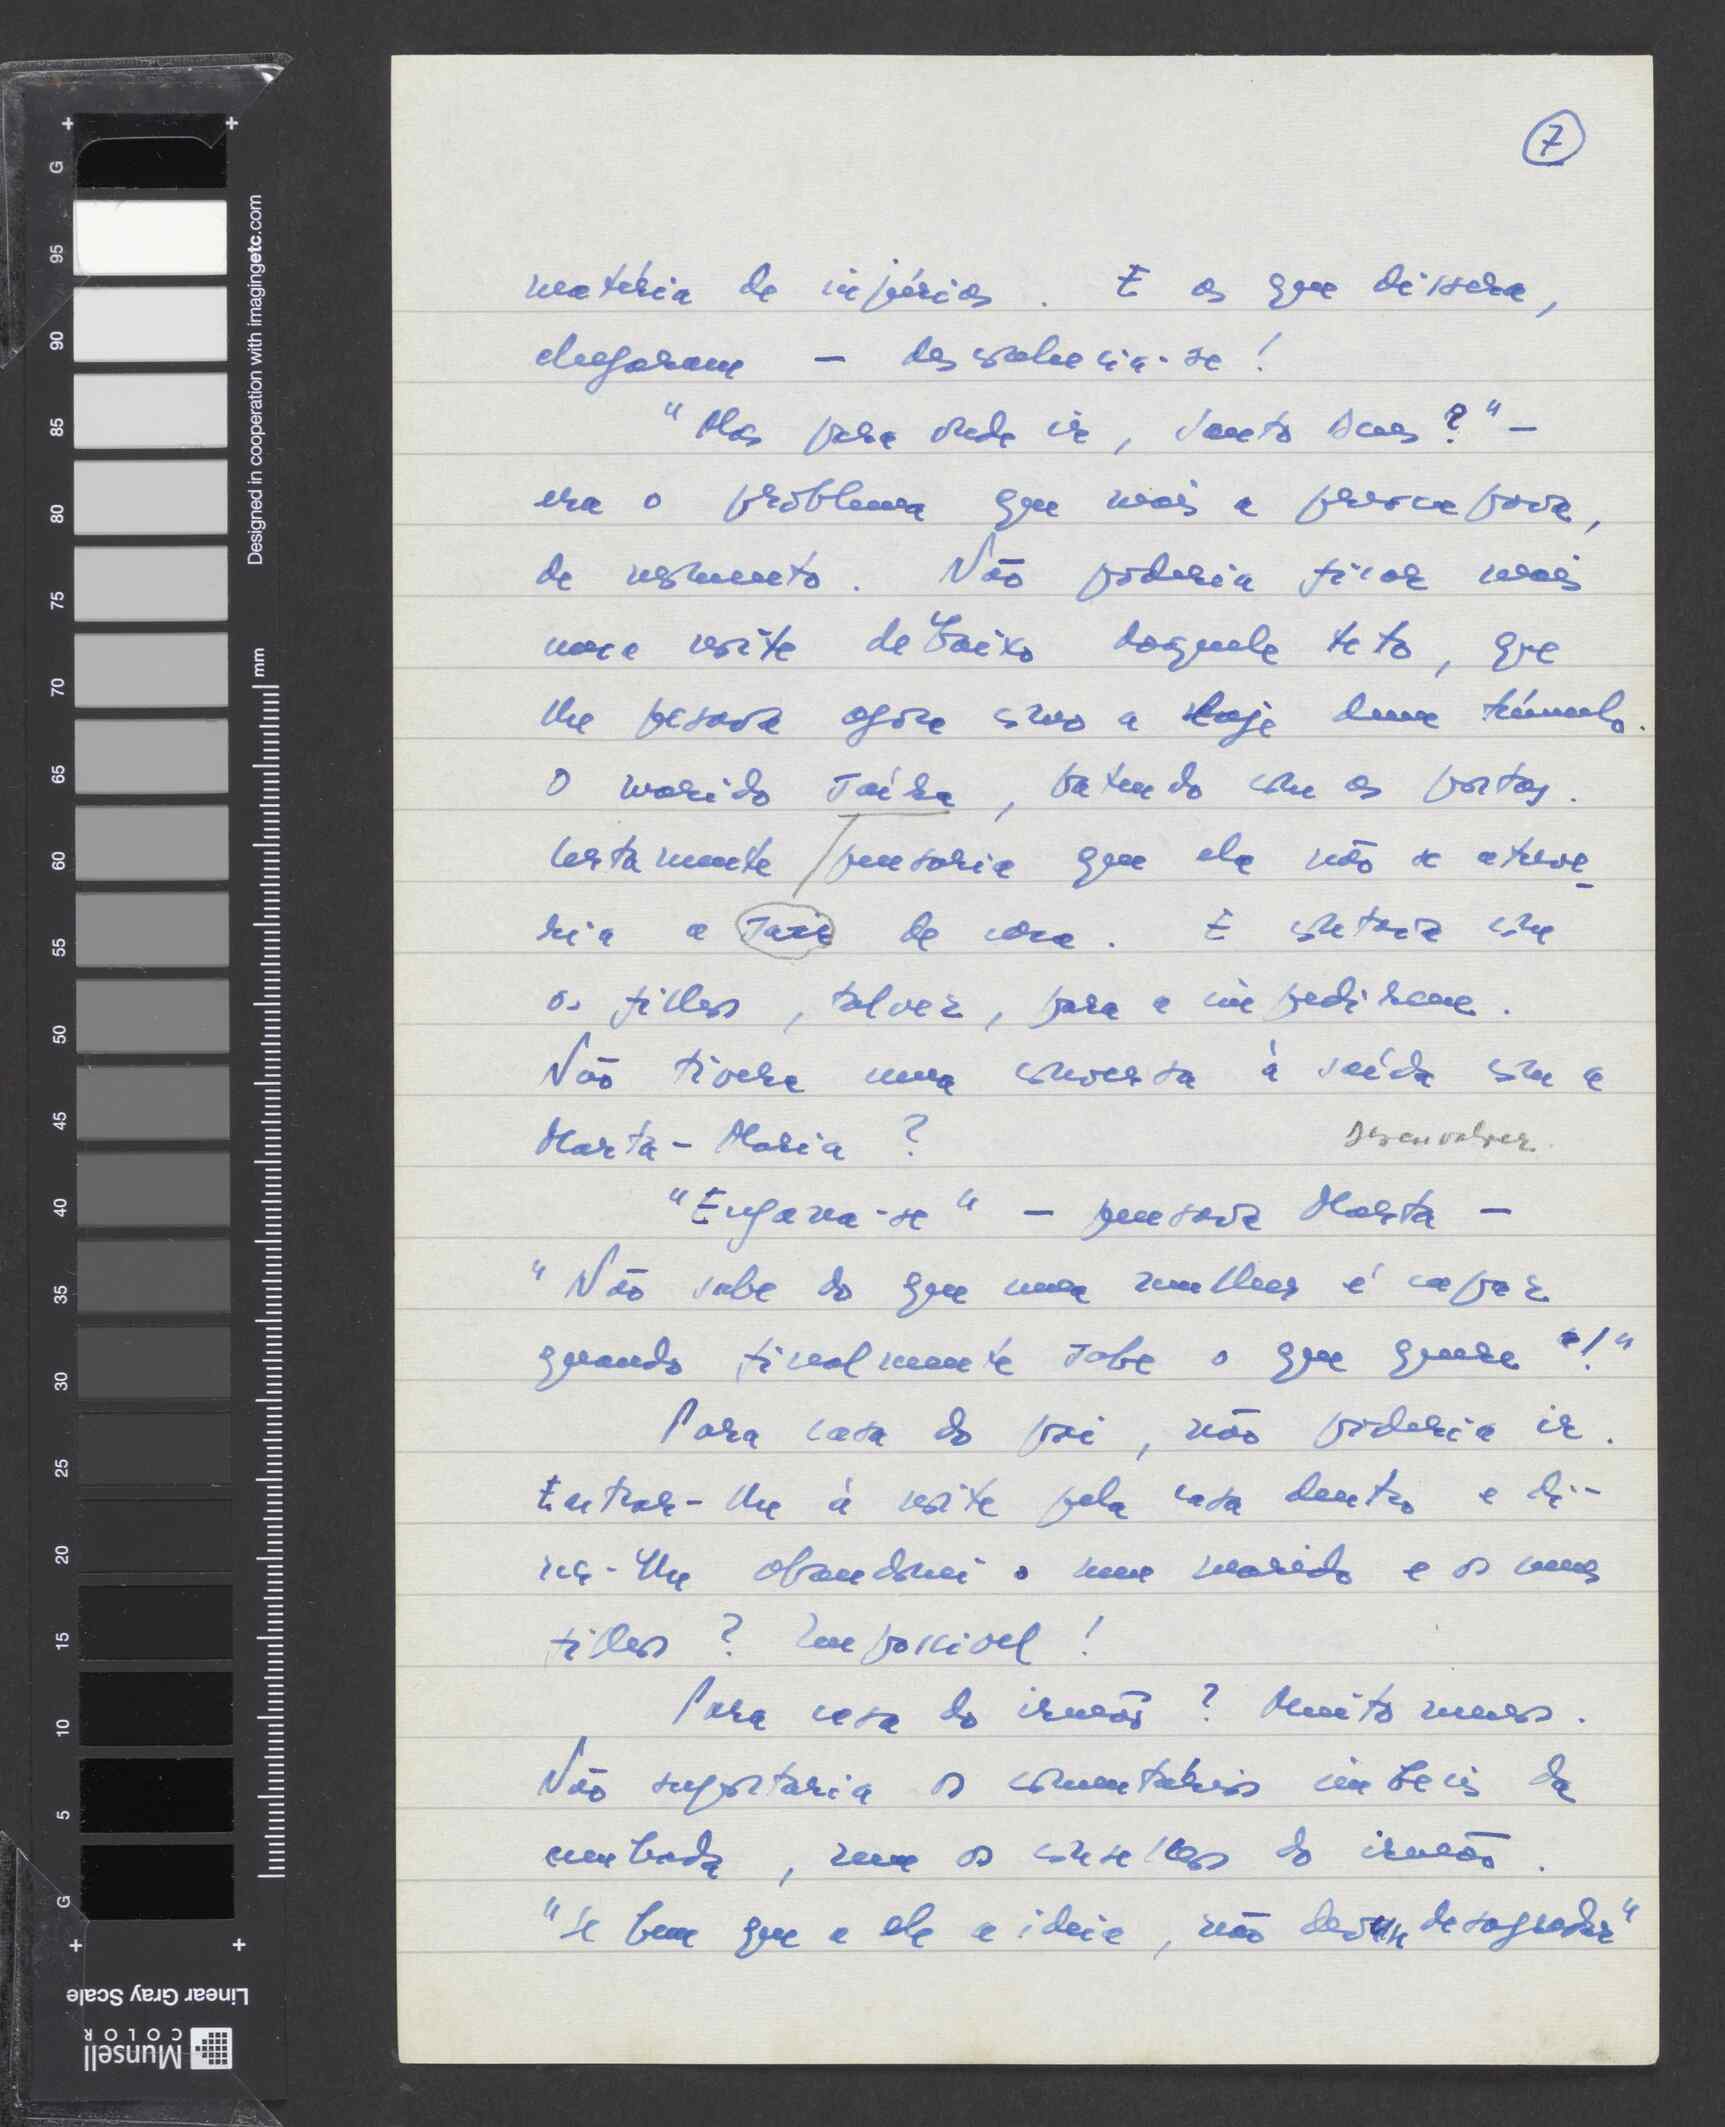 7
matéria de injúrias. E as que dissera,
chegaram — desconhecia-se!
"Mas para onde ir, Santo Deus?" —
era o problema que mais a preocupava,
de momento. Não poderia ficar mais
uma noite debaixo daquele teto, que
lhe pesava agora como a laje dum túmulo.
O marido saíra, batendo com as portas.
Certamente pensaria que ela não se atreve
ria a sair de casa. E contava com
os filhos, talvez, para a impedirem.
Não tivera uma conversa à saída com a
Marta-Maria?
Desenvolver.
"Engana-se" — pensava Marta —
"Não sabe do que uma mulher é capaz
quando finalmente sabe o que quere"!"
Para casa do pai, não poderia ir.
Entrar-lhe à noite pela casa dentro e di-
zer-lhe abandonei o meu marido e os meus
filhos? Impossivel!
Para casa do irmão? Muito menos.
Não suportaria os comentários imbecis da
cunhada, nem os conselhos do irmão.
"Se bem que a ele a ideia, não desagradar"
G
95
90
85
80
75
70
65
60
55
50
45
40
35
30
25
20
15
10
5
G
Designed in cooperation with imagingetc.com
mm
Linear Gray Scale
Munsell
COLOR